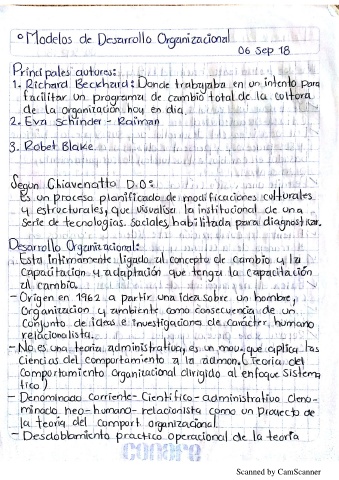 ° Modelos de Desarrollo Organizacional
06 Sep 18
Principales autores:
1. Richard Beckhard: Donde trabajaba en un intento para
facilitar un programa de cambio total de la cultura
de la organización hoy en día.
2. Eva Schinder - Raiman
3. Robet Blake
Segun Chiavenatto D.O:
Es un proceso planificado de modificaciones culturales
y estructurales, que visualisa la institucional de una
serie de tecnologias sociales, habilitada para diagnostizar.
Desarrollo Organizacional:
- Esta intimamente ligado al concepto de cambio y la
Capacitacion y adaptación que tenga la capacitación
al cambio.
- Origen en 1962 a partir una idea sobre un hombre,
Organizacion y ambiente como consecuencia de un
Conjunto de ideas e investigaciones de carácter humano
relacionalista.
- No es una teoria administrativa, es un mov. que aplica las
Ciencias del comportamiento a la admon. (Teoria del
Comportamiento Organizacional dirigido al enfoque Sistema
tico)
- Denominado corriente - Cientifico - administrativo deno-
minado neo - humano - relacionista como un proyecto de
la teoria del comport. organizacional
- Desdoblamiento practico operacional de la teoria
Scanned by CamScanner